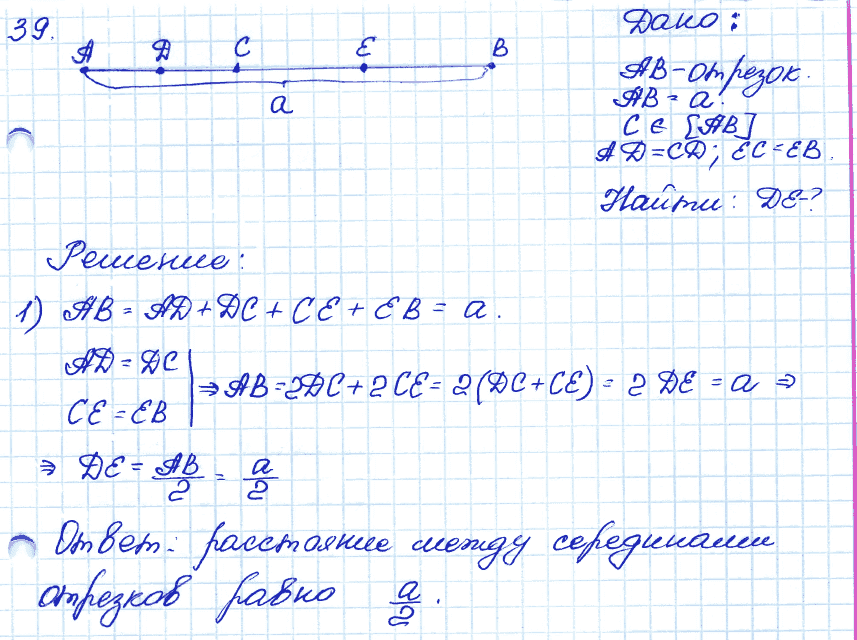 39.
A D C E B
a
Дано:
AB-отрезок.
AB = a.
C ∈ [AB]
AD=CD; EC=EB.
Найти: DE-?
Решение:
1) AB = AD + DC + CE + EB = a.
AD = DC
CE = EB
⇒ AB = 2DC + 2CE = 2(DC+CE) = 2 DE = a ⇒
⇒ DE = AB/2 = a/2
Ответ: расстояние между серединами
отрезков равно a/2.